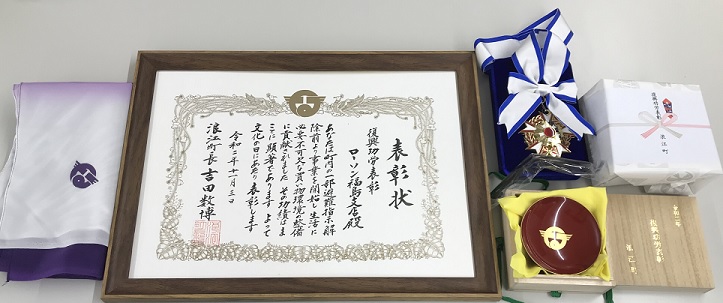 表彰状
復興功労表彰
ローソン福島支店殿
あなたは町内の一部避難指示解
除前より事業を開始し生活に
必要不可欠な買い物環境の整備
に貢献されました その功績はま
ことに顕著であります よって
文化の日にあたり表彰します
令和二年十一月三日
浪江町長 吉田数博
復興功労表彰
浪江町
令和二年
復興功労表彰
浪江町